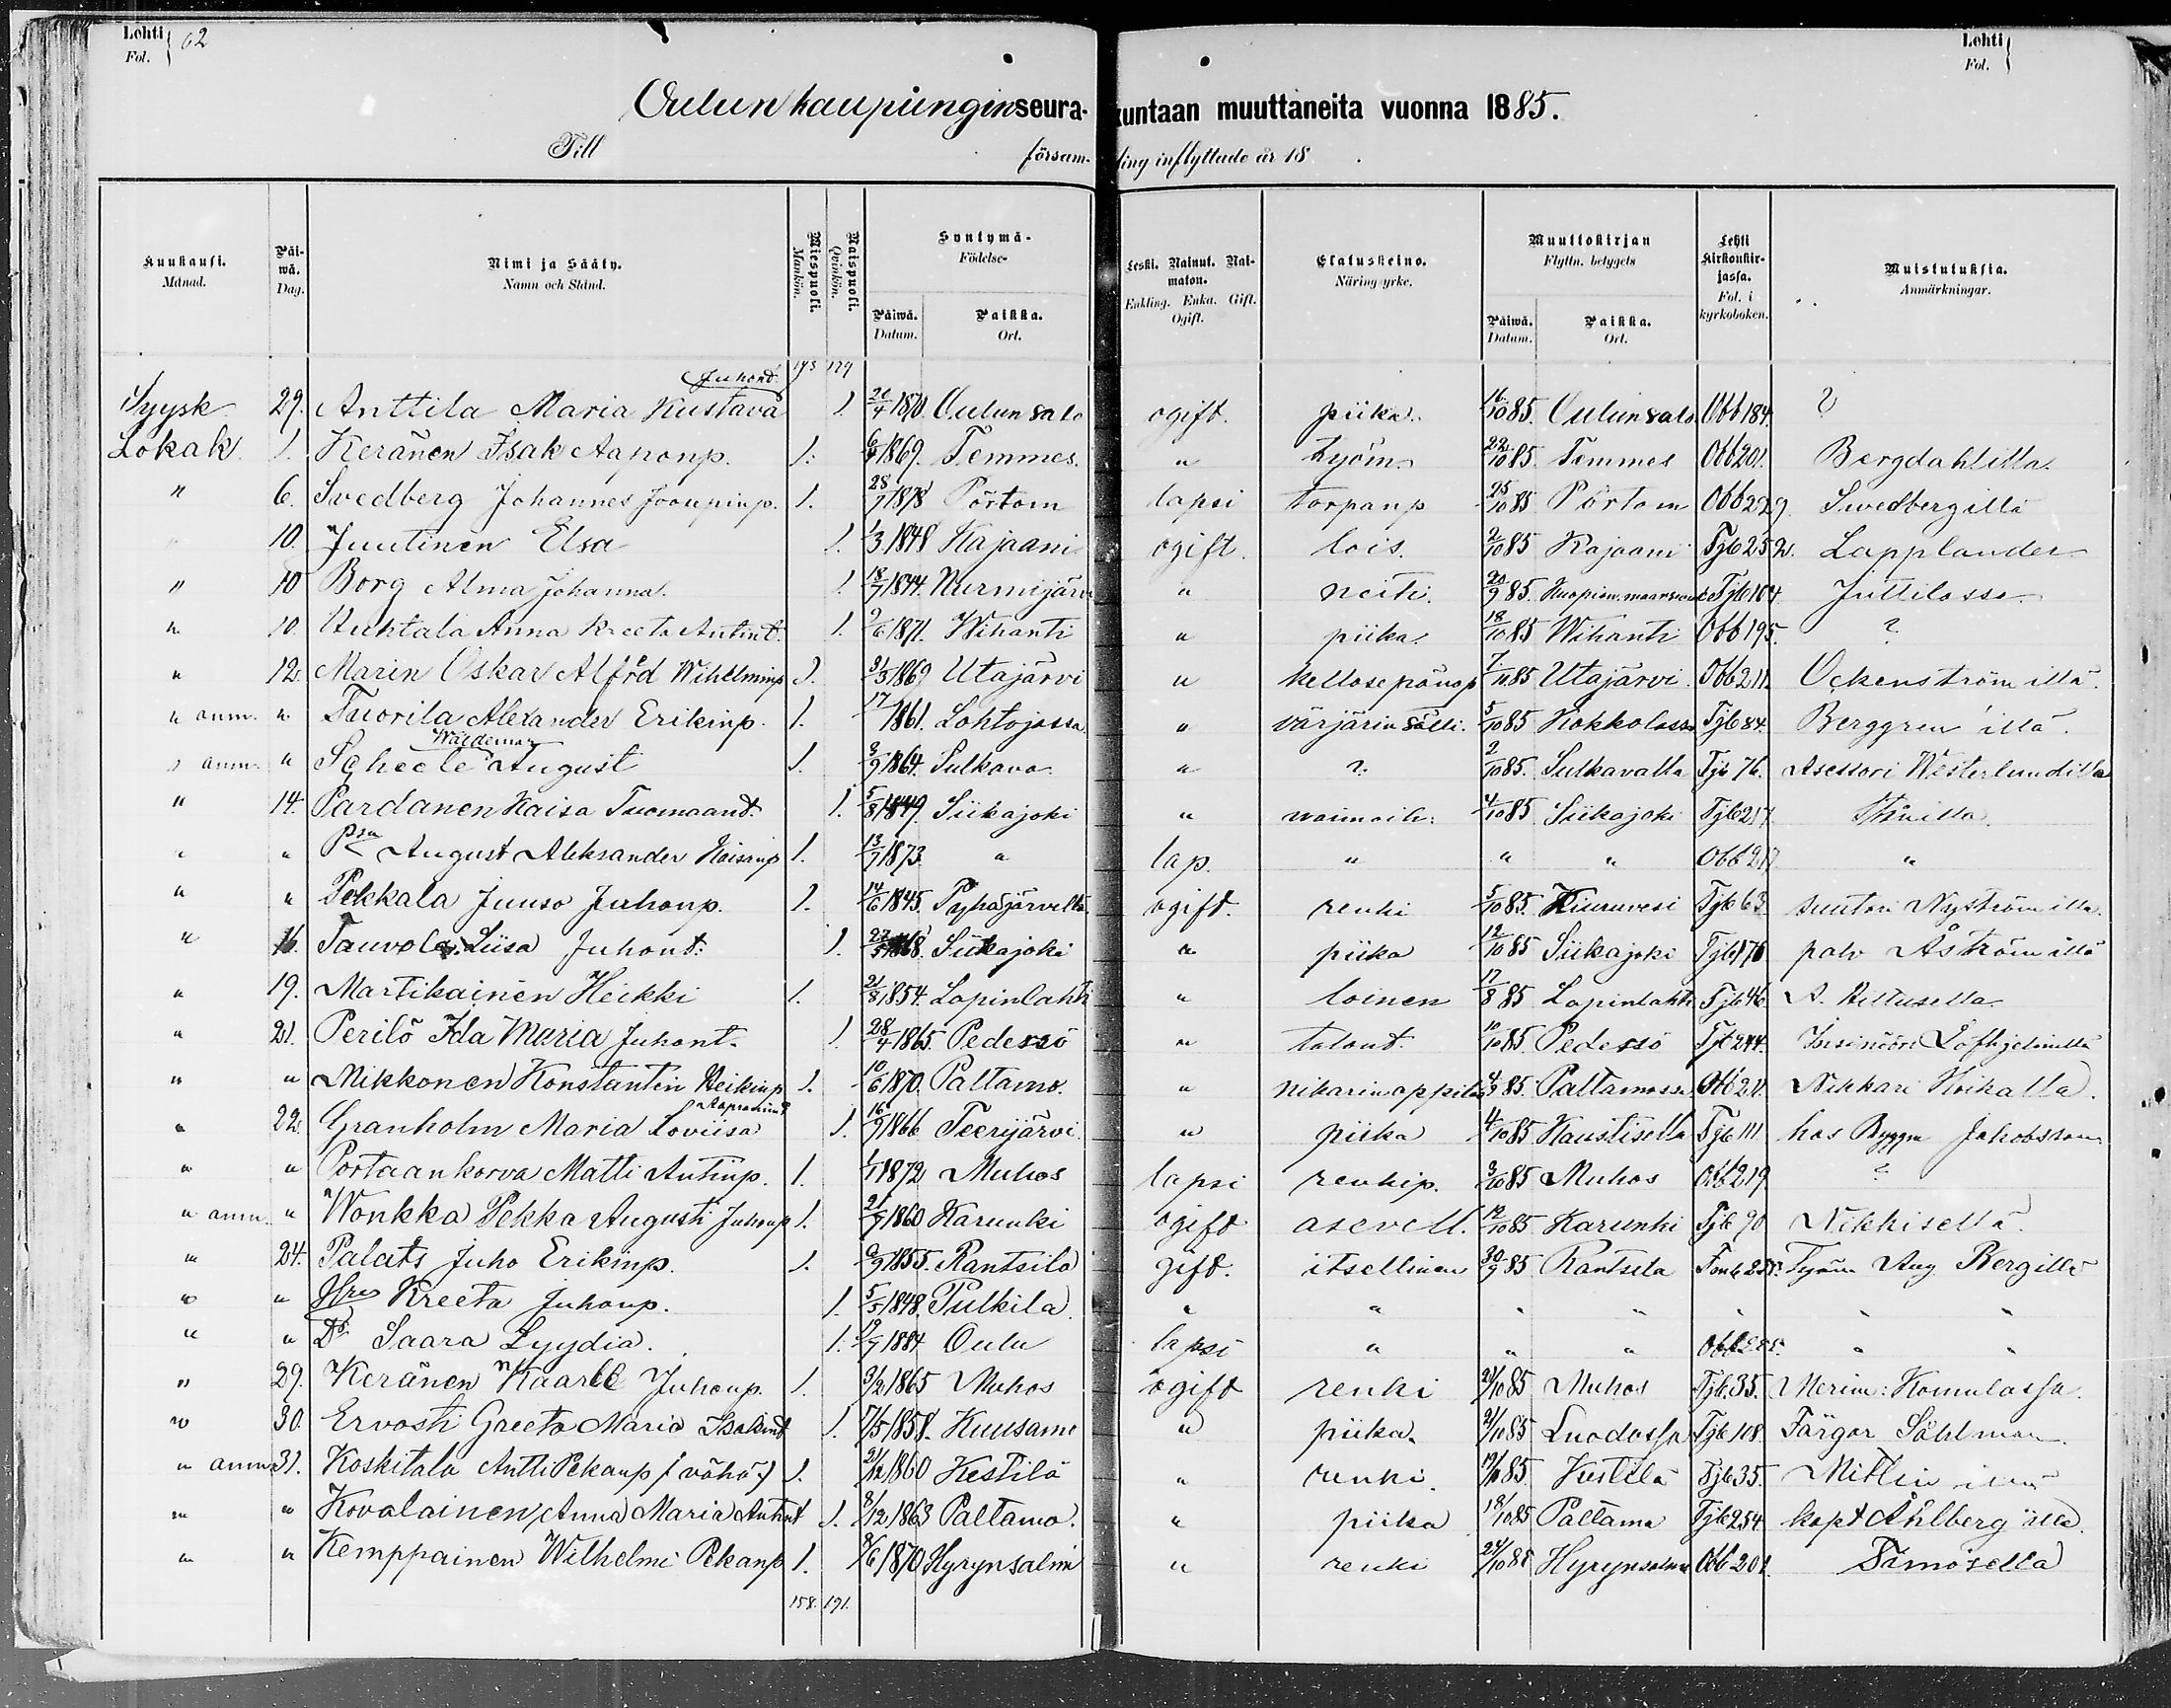 Lehti Fol. 62
Lehti Fol.
Oulun kaupungin seurakuntaan muuttaneita vuonna 1885.
Till församling inflyttade år 18 .
Kuukausi. Månad. Päiwä. Dag. Nimi ja Sääty. Namn och Stånd. Miespuoli. Mankön. Naispuoli. Qvinkön. Syntymä- Födelse- Päiwä. Datum. Paikka. Ort. Leski. Nainut. Naimaton. Enkling. Enka. Gift. Ogift. Elatuskeino. Näringsyrke. Muuttokirjan Flyttn. betygets Päiwä. Datum. Paikka. Ort. Lehti kirkonkirjassa. Fol. i kyrkoboken. Muistutuksia. Anmärkningar.
Syysk 29. Anttila Maria Kustava Juhont. 1. 20/4 1870 Oulunsalo ogift. piika. 16/10 85. Oulunsalo Obb 184. ?
Lokak. 1. Keränen Isak Aaponp. 1. 6/4 1869. Temmes. " työm. 22/10 85. Temmes Obb 201. Bergdahlilla.
" 6. Svedberg Johannes 1. 28/7 1878 Pörtom lapsi torpanp 25/10 85 Pörtom Obb 229. Swedbergillä
" 10. Juutinen Elsa 1. 1/3 1848 Kajaani ogift. lois. 2/10 85 Kajaani Tjb 252. Lapplander
" 10 Borg Alma Johanna. 1. 18/7 1844. Nurmijärvi " neiti. 20/9 85. Tjb 104. Juttilassa.
" 10. Huhtala Anna Kreeta Antint. 1. 9/6 1871. Wihanti " piika. 18/10 85 Wihanti Obb 195. ?
" 12. Marin Oskar Alfrd Wihelminp 1. 31/5 1869 Utajärvi " kellosepänop 7/11 85 Utajärvi. Obb 211. Ockenström illä.
" anm. " Tuorila Alexander Erikinp. 1. 17/ 1861. Lohtajassa. " värjärin sälli. 5/10 85 Kokkolassa Tjb 84. Berggren'illä.
" anm. " Scheele Waldemar August 1. 3/9 1864. Sulkava " ?. 2/10 85. Sulkavalta Tjb 76. Asessori Westerlundilla
" 14. Pardanen Kaisa Tuomaant. 1. 5/8 1849. Siikajoki " waimoih: 4/10 85 Siikajoki Tjb 217.
" " Psa August Aleksander Kaisanp 1. 13/7 1873. " lap. " " " Obb 217 "
" " Pekkala Juuso Juhonp. 1. 14/6 1845. Pyhäjärveltä ogift. renki 5/10 85. Kiuruvesi Tjb 63. suutari Nyström illä.
" 16. Tauvola Liisa Juhont: 1. 22/5 1868. Siikajoki " piika 12/10 85 Siikajoki Tjb 176 palv Åström illä
" 19. Martikainen Heikki 1. 21/8 1854. Lapinlahti " loinen 17/8 85 Lapinlahti Tjb 46. A. Hiltusella.
" 21. Perilö Ida Maria Juhont. 1. 28/4 1865. Pedersö " talont. 10/10 85. Pedersö Tjb 244. Insinööri Löfhjelmillä
" " Mikkonen Konstantin Heikinp 1. 10/6 1870. Paltamo. " nikarinoppilas 4/9 85. Paltamossa Obb 211. Nikkari Hoikalla.
" 22. Granholm Maria Loviisa 1. 16/9 1866 Teerijärvi " piika 4/10 85 Kaustisella Tjb 111 hos Byggm Jakobsson
" " Portaankorva Matti Antinp. 1. 1/1 1872 Muhos lapsi renkip. 3/10 85 Muhos Obb 219. ?
" anm. " Wonkka Pekka Augusti Juhonp 1. 21/7 1860 Karunki ogift asevell. 12/10 85 Karunki Tjb 90 Nikkisellä.
" 24. Palats Juho Erikinp. 1. 9/9 1855. Rantsila gift. itsellinen 30/9 85. Rantsila Työm Aug. Bergillä
" " Hru Kreeta Juhonp. 1. 5/5 1848. Pulkila. " " " " " " "
" " Dr Saara Lyydia. 1. 19/9 1884 Oulu lapsi " " " " "
" 29. Keränen Kaarle Juhonp. 1. 3/2 1865 Muhos ogift renki 21/10 85 Muhos Tjb. 35. Merim: Komulassa.
" 30. Ervasti Greeta Maria Isakint 1. 7/5 1858. Kuusamo " piika. 2/10 85 Tjb 108. Färgar Sählman
" anm 31. Koskitalo Antti Pekanp (vähä) 1. 21/12 1860 Kestilä " renki. 19/10 85. Kestilä Tjb 35. Mitlin illä
" " Kovalainen Anna Maria Antint 1. 8/12 1863 Paltamo. " piika 18/10 85 Paltamo Tjb 254. kapt Åhlberg illä.
" " Kemppainen Wilhelmi Pekanp 1. 8/6 1870 Hyrynsalmi " renki 24/10 85 Hyrynsalmi Obb 201. Timosella
158. 191.